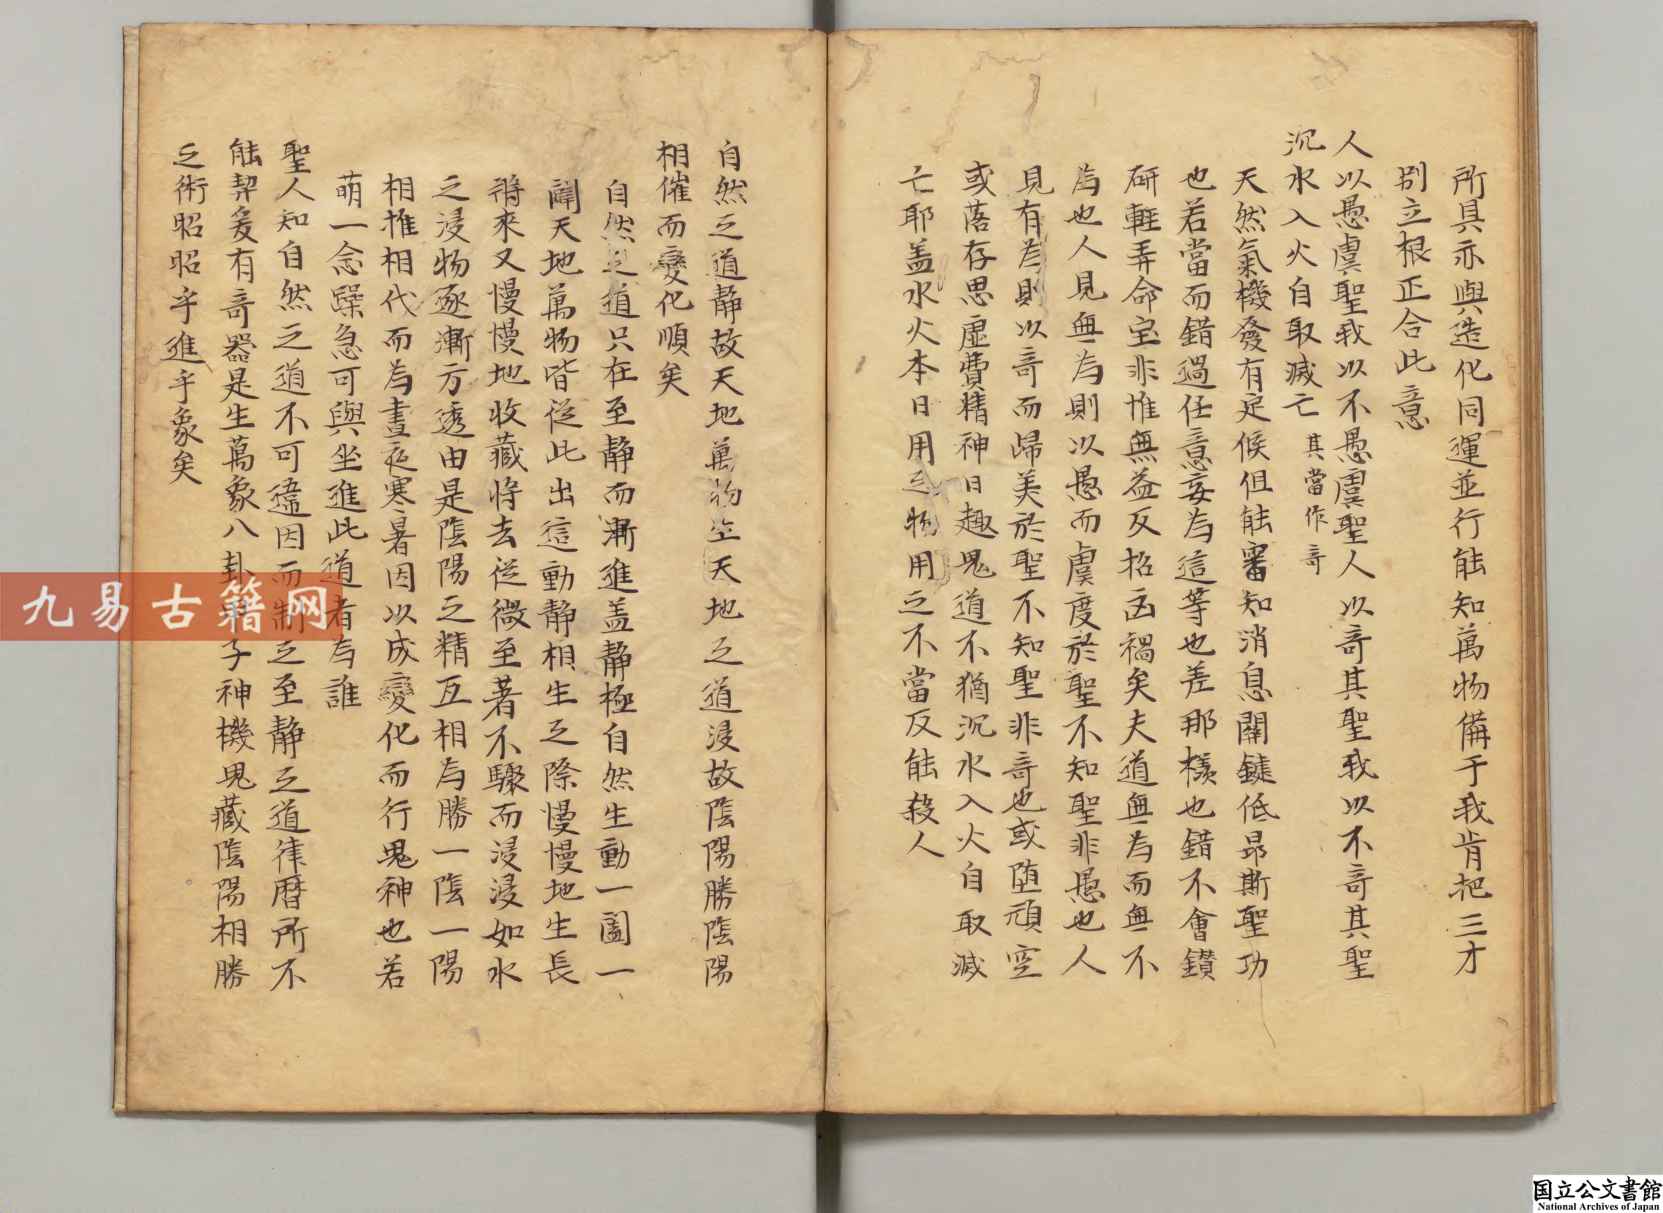 所具亦與造化同運並行能知萬物備于我肯把三才
别立根正合此意
人以愚虞聖我以不愚虞聖人以竒其聖我以不竒其聖
沉水入火自取滅亡 其當作竒
天然氣機發有定候但能審知消息關鍵低昂斯聖功
也若當而錯過任意妄為這等也差那樣也錯不會鑚
研輊弄命宝非惟無益反招凶禍矣夫道無為而無不
為也人見無為則以愚而虞度於聖不知聖非愚也人
見有為則以竒而歸美於聖不知聖非竒也或堕頑空
或落存思虛費精神日趣鬼道不猶沉水入火自取滅
亡耶盖水火本日用之物用之不當反能殺人
自然之道静故天地萬物生天地之道浸故陰陽勝陰陽
相催而變化順矣
自然之道只在至静而漸進盖静極自然生動一闔一
闢天地萬物皆從此出這動静相生之際慢慢地生長
將來又慢慢地收藏将去從微至著不驟而浸浸如水
之浸物逐漸方透由是陰陽之精互相為勝一陰一陽
相推相代而為晝夜寒暑因以成變化而行鬼神也若
萌一念躁急可與坐進此道者為誰
聖人知自然之道不可違因而制之至静之道律暦所不
能契爰有竒器是生萬象八卦甲子神機鬼藏陰陽相勝
之術昭昭乎進乎象矣
九易古籍网
国立公文書館
National Archives of Japan